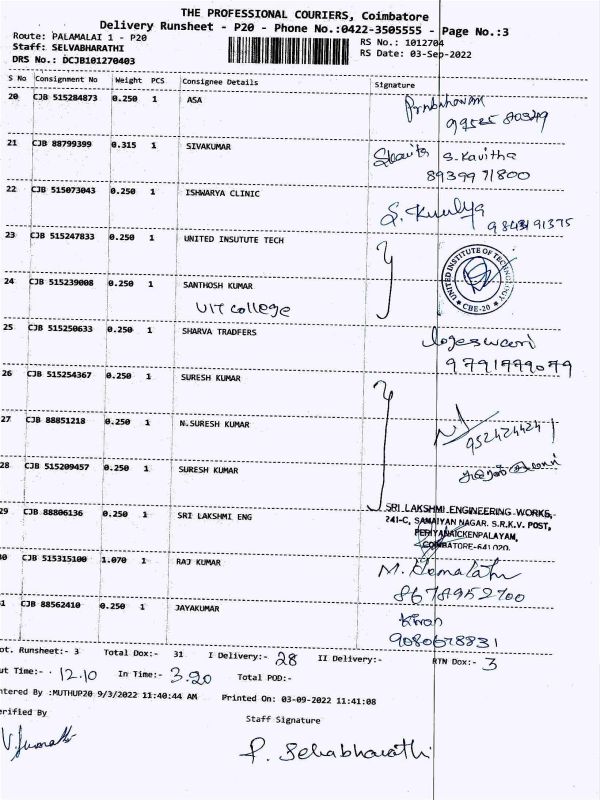 THE PROFESSIONAL COURIERS, Coimbatore
Delivery Runsheet - P20 - Phone No.:0422-3505555 - Page No.:3
Route: PALAMALAI 1 - P20
RS No.: 1012704
Staff: SELVABHARATHI
RS Date: 03-Sep-2022
DRS No.: DCJB101270403
S No Consignment No Weight PCS Consignee Details Signature
20 CJB 515284873 0.250 1 ASA
21 CJB 88799399 0.315 1 SIVAKUMAR S. Kavitha
8939971800
22 CJB 515073043 0.250 1 ISHWARYA CLINIC
9843191375
23 CJB 515247833 0.250 1 UNITED INSUTUTE TECH
UNITED INSTITUTE OF TECHNOLOGY
CBE-20
24 CJB 515239008 0.250 1 SANTHOSH KUMAR
UIT college
25 CJB 515250633 0.250 1 SHARVA TRADFERS logeswari
9791999079
26 CJB 515254367 0.250 1 SURESH KUMAR
27 CJB 88851218 0.250 1 N.SURESH KUMAR
28 CJB 515209457 0.250 1 SURESH KUMAR
29 CJB 88806136 0.250 1 SRI LAKSHMI ENG
SRI LAKSHMI ENGINEERING WORKS,
241-C, SAMAIYAN NAGAR. S.R.K.V. POST,
PERIYANAICKENPALAYAM,
COIMBATORE-641020.
0 CJB 515315100 1.070 1 RAJ KUMAR M. Hemalatha
8678952700
1 CJB 88562410 0.250 1 JAYAKUMAR Kiran
9080678831
ot. Runsheet:- 3 Total Dox:- 31 I Delivery:- 28 II Delivery:- RTN Dox:- 3
ut Time:- 12.10 In Time:- 3.20 Total POD:-
ntered By :MUTHUP20 9/3/2022 11:40:44 AM Printed On: 03-09-2022 11:41:08
erified By
Staff Signature
P. Selvabharathi